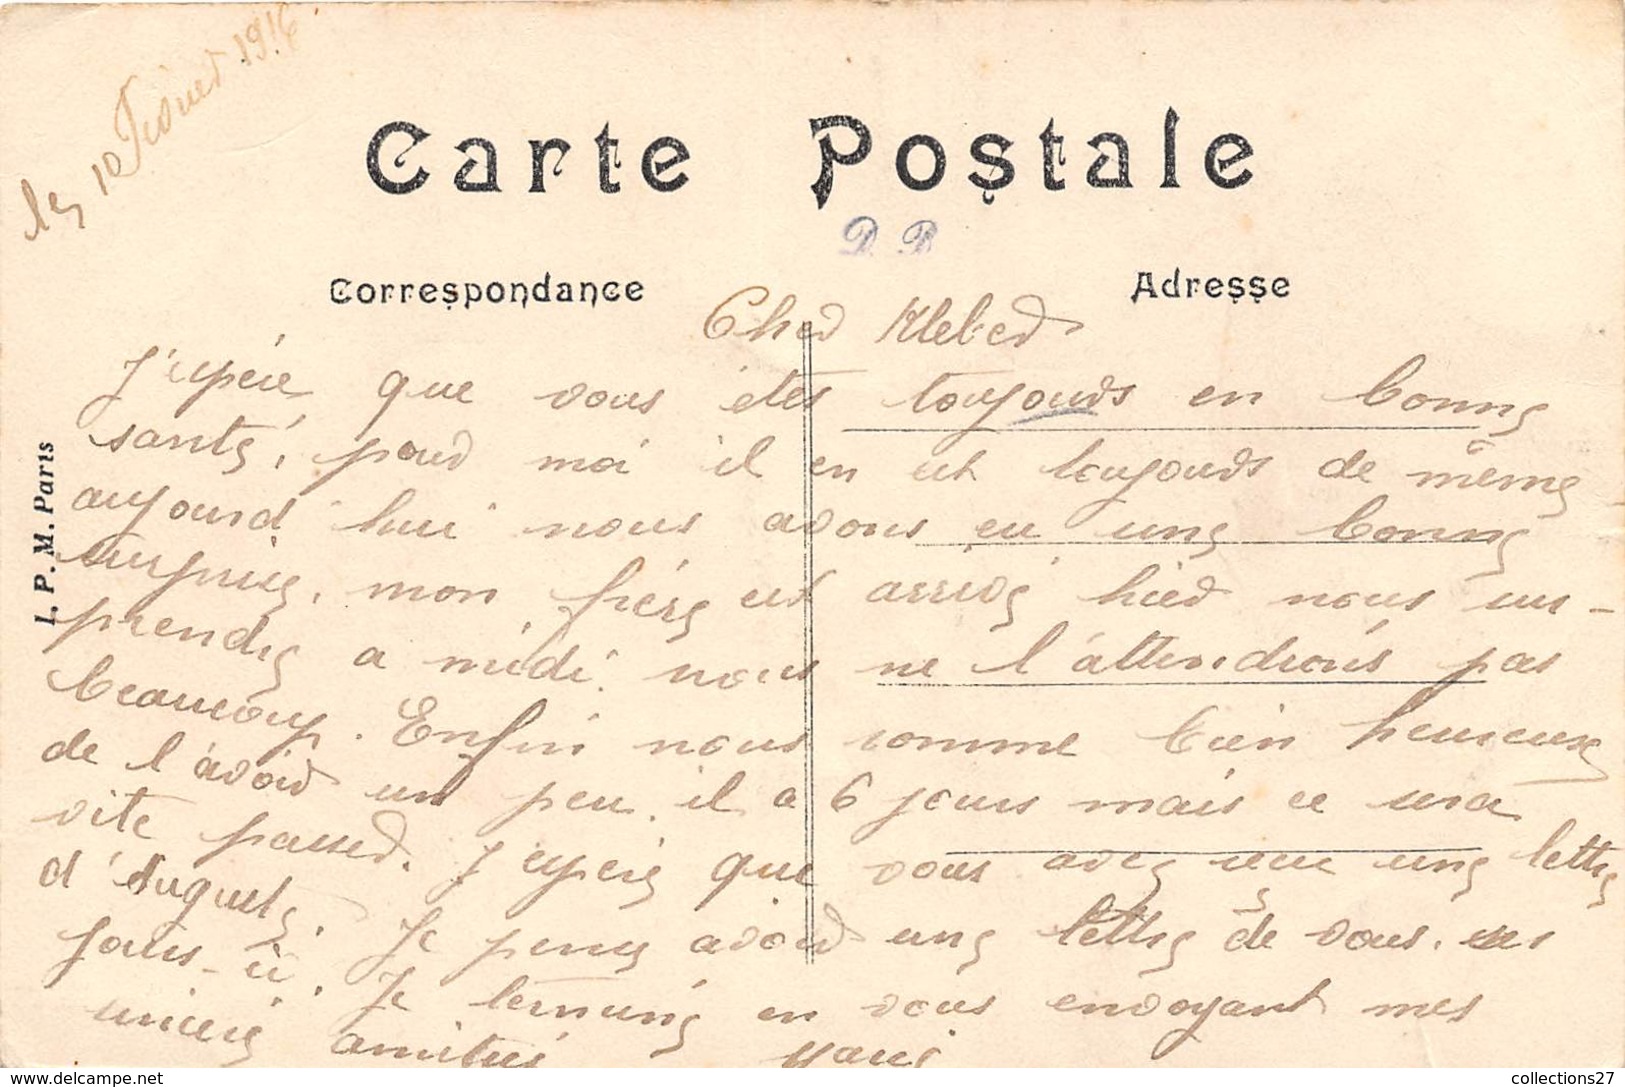 les 10 Fevrier 1916
Carte Postale
D. B
Correspondance
Adresse
Cher Kleber
J'espère que vous êtes toujours en bonne
santé, pour moi il en est toujours de même
aujourd'hui nous avons eu une bonne
surprise, mon frère est arrivé hier nous sur-
prendre a midi. nous ne l'attendions pas
beaucoup. Enfin nous somme bien heureux
de l'avoir un peu, il a 6 jours mais ce sera
vite passer. J'espère que vous avez reçu une lettre
d'Auguste. Je pense avoir une lettre de vous, ces
jours-ci. Je termine en vous envoyant mes
sincère amitiés
L. P. M. Paris
collections27